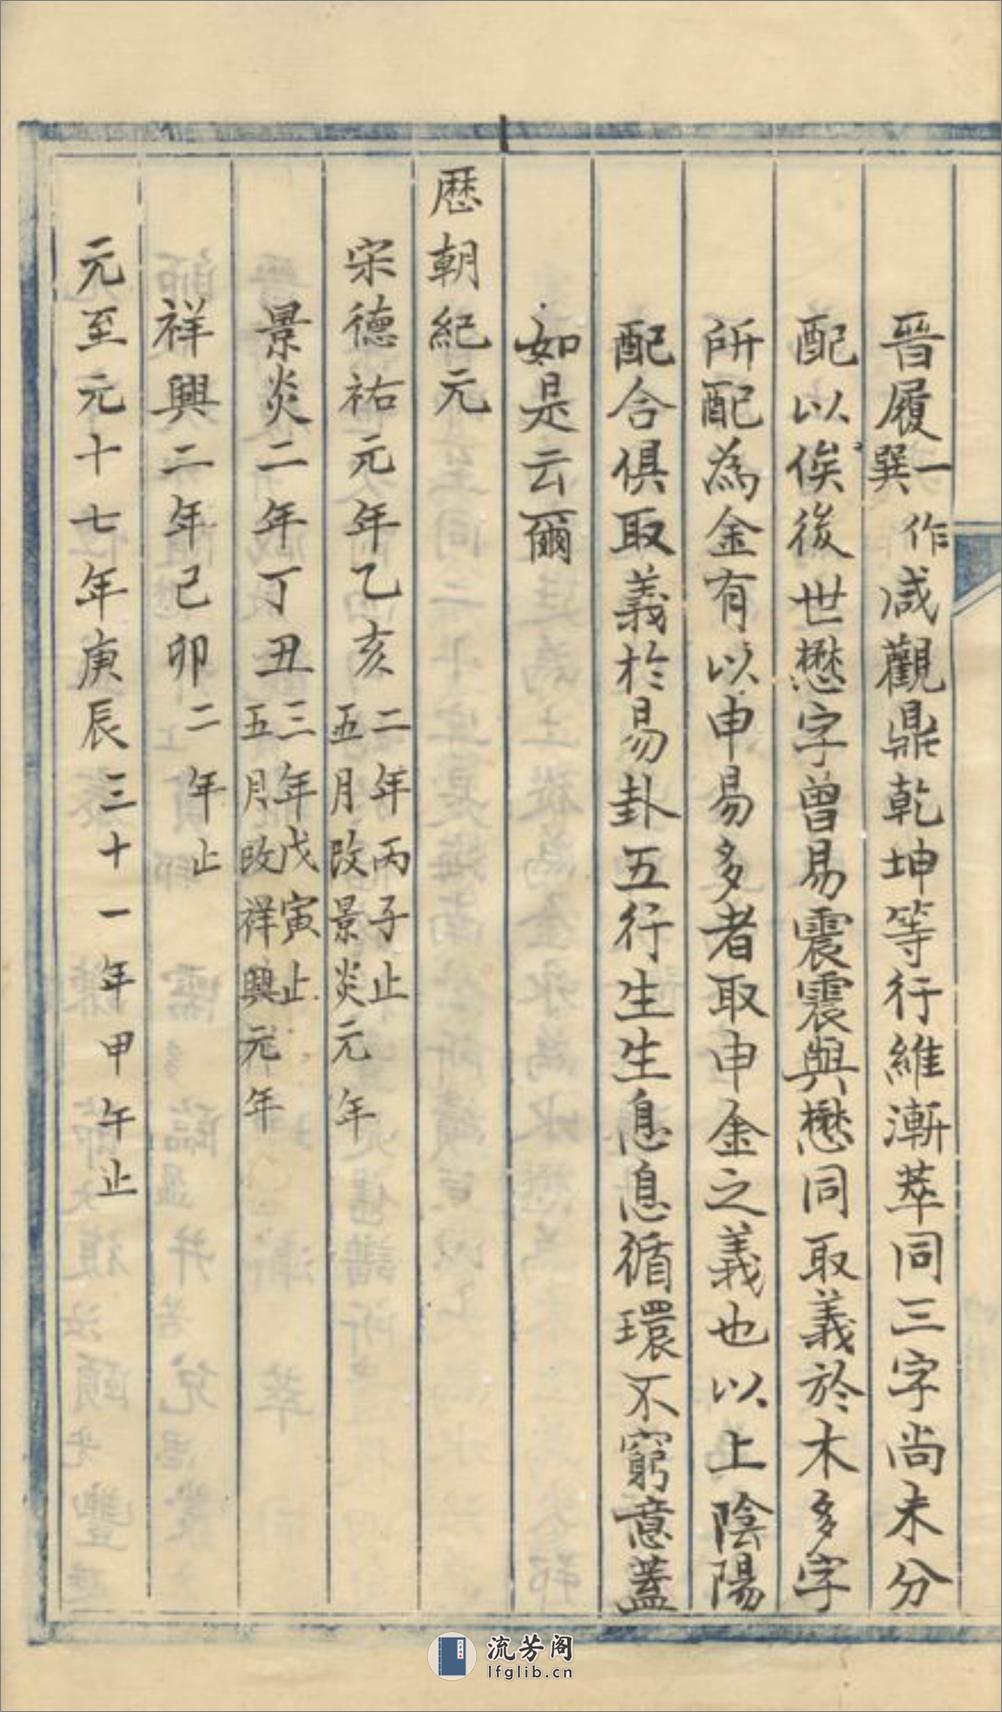 晉履巽一作咸觀鼎乾坤等行維漸萃同三字尚未分
配以俟後世懋字曾易震震與懋同取義於木多字
所配為金有以申易多者取申金之義也以上陰陽
配合俱取義於易卦五行生生息息循環不窮意蓋
如是云爾
歷朝紀元
宋德祐元年乙亥二年丙子止五月改景炎元年
景炎二年丁丑三年戊寅止五月改祥興元年
祥興二年己卯二年止
元至元十七年庚辰三十一年甲午止
流芳阁
lfglib.cn